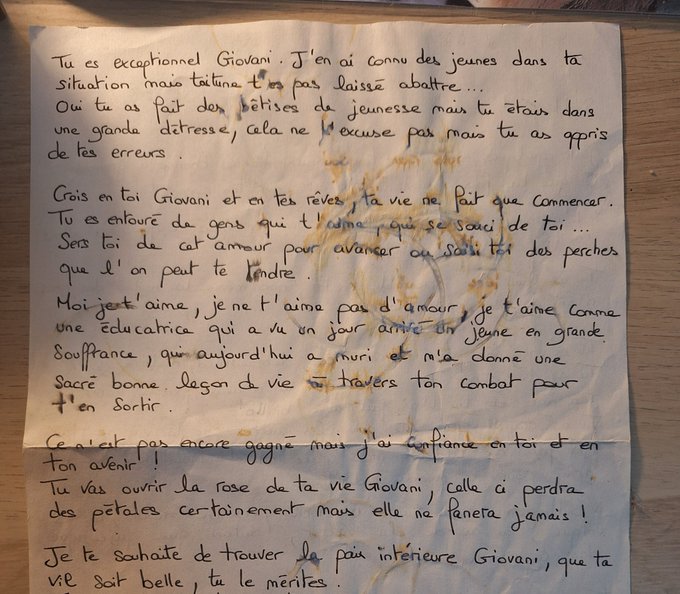 Tu es exceptionnel Giovani. J'en ai connu des jeunes dans ta
situation mais toi tu ne t'es pas laissé abattre...
Oui tu as fait des bêtises de jeunesse mais tu étais dans
une grande détresse, cela ne l'excuse pas mais tu as appris
de tes erreurs.
Crois en toi Giovani et en tes rêves, ta vie ne fait que commencer.
Tu es entouré de gens qui t'aime, qui se souci de toi...
Sers toi de cet amour pour avancer ou saisi toi des perches
que l'on peut te tendre.
Moi je t'aime, je ne t'aime pas d'amour, je t'aime comme
une éducatrice qui a vu un jour arrivé un jeune en grande
Souffrance, qui aujourd'hui a muri et m'a donné une
Sacré bonne leçon de vie à travers ton combat pour
t'en Sortir.
Ce n'est pas encore gagné mais j'ai confiance en toi et en
ton avenir !
Tu vas ouvrir la rose de ta vie Giovani, celle ci perdra
des pétales certainement mais elle ne fanera jamais !
Je te souhaite de trouver la paix intérieure Giovani, que ta
vie soit belle, tu le mérites.